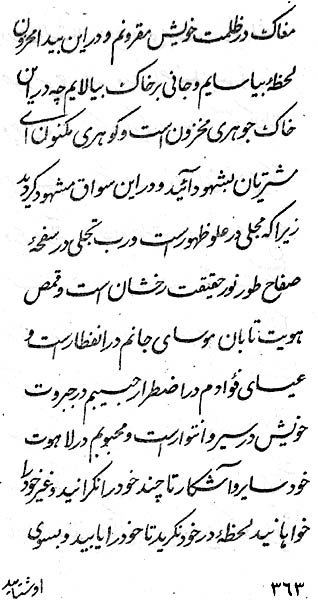 مغاک در ظلمت خویش مقرونم و در این بیدا محزون
لحظهٔ بیاسایم و جانی بر خاک بیالایم چه در این
خاک جوهری مخزون است و گوهری مکنون ای
مشتریان بشهود آئید و در این سواق مشهود گردید
زیرا که مجلی در علو ظهور است و رب تجلی در سفحهٔ
صفاح طور نور حقیقت رخشان است و قمص
هویت تابان موسای جانم در انفطار است و
عیسای فؤادم در اضطرار حبیبم در جبروت
خویش در سیر و انتوار است و محبوبم در لاهوت
خود سایر و آشکار تا چند خود را نگرانید و غیر خود را
خواهانید لحظهٔ در خود نگرید تا خود را یابید و بسوی
او شتابید
۳۶۳